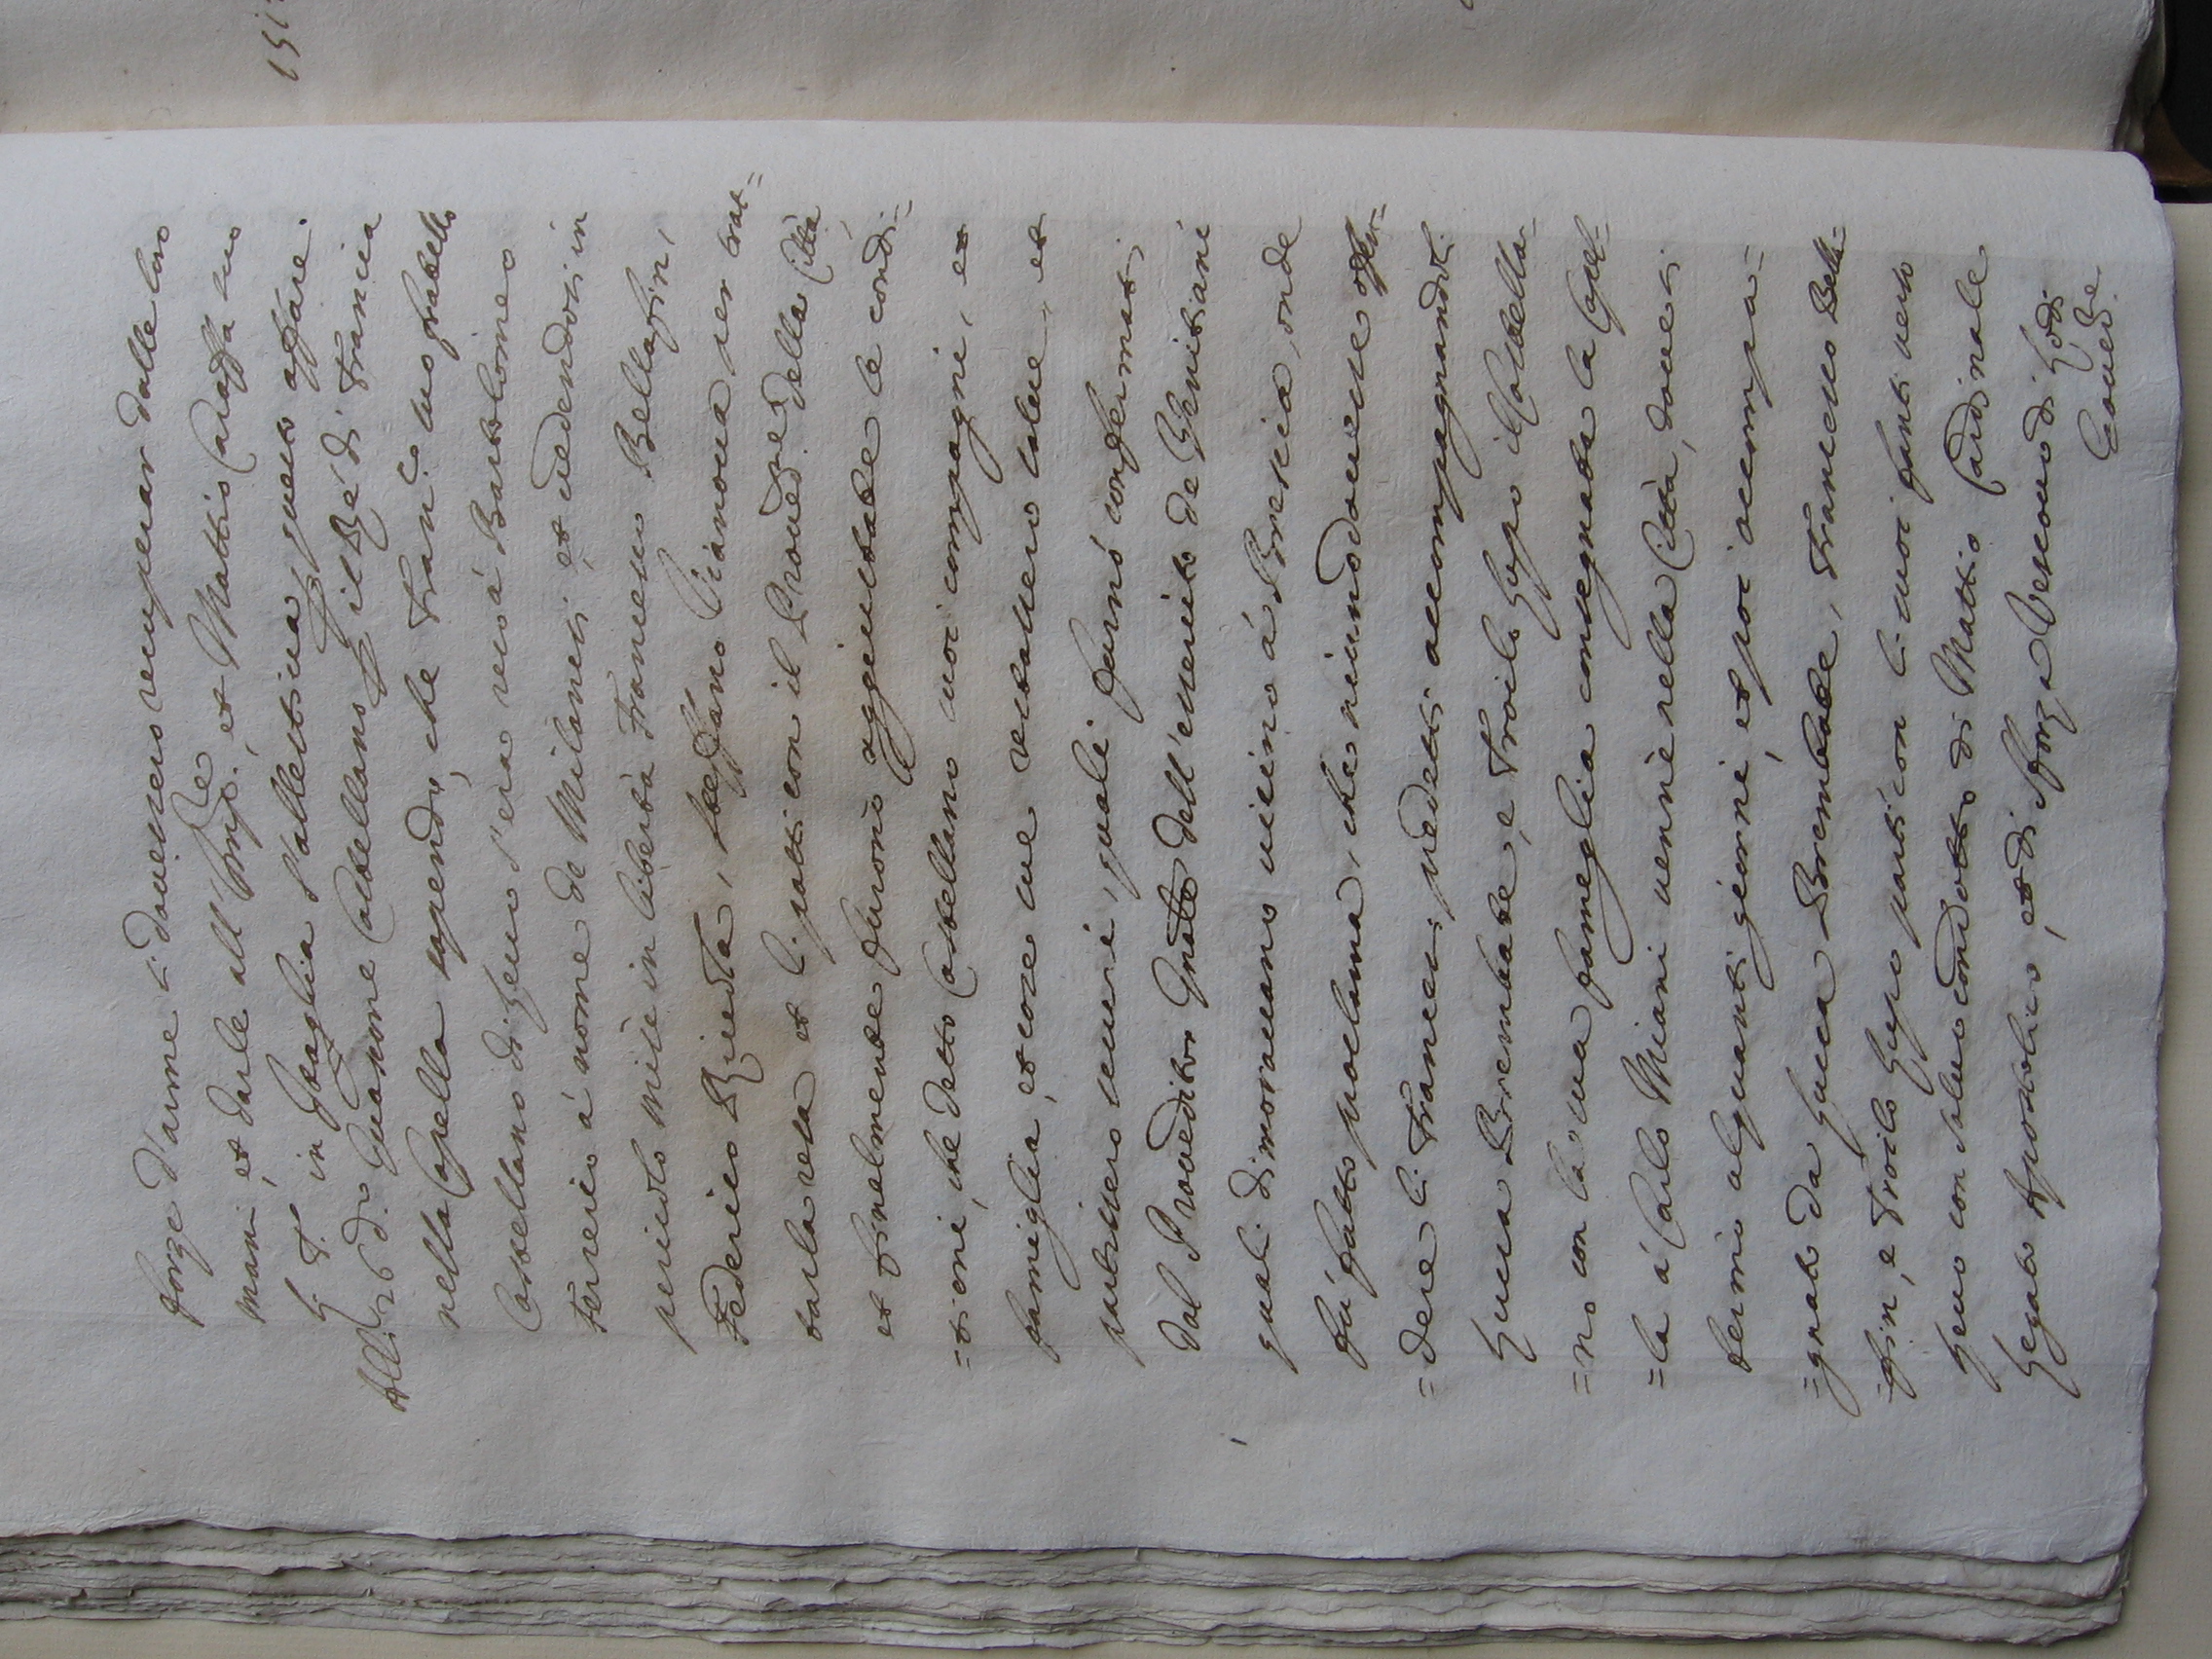 forze d'arme si dovessero recuperar dalle loro
mani, et darle all'Imp.re, et Mattio Caraffa suo
L. T. in Ittaglia s'allestiva questo affare.
Alli 26 d.o Guasnone Castellano p il Rè di Francia
nella Capella sapendo, che Fran.co suo fratello
Castellano di Leuco s'era reso à Bartolomeo
Ferrerio à nome de Milanesi, et vedendosi in
pericolo mise in libertà Francesco Bellafin,
Federico Rivolta, steffano Cicanoua per trat=
tarla resa et li patti con il Proued.re della Città
et finelmente furono aggiustate le condi=
=tioni, che detto Castellano suoi compagni, et
fameglia, et cose sue restassero salue, et
partissero securi, quali furnò confermati
dal Proueditor Gnale dell'essercito de Venitiani
quali dimorauano uicino à Brescia, onde
fù fatto proclama, che niuno douesse offen=
=dere li Francesi predetti accompagnandoli
Lucca Brembate, e Troilo Lupo il Castella=
=no con la sua fameglia consegnata la Capel=
=la à Carlo Miani uennè nella Città, doue si
fermò alquanti giorni, et poi accompa=
=gnato da Lucca Brembate, Francesco Bella=
=ffin, e Troilo Lupo partì con li suoi fanti uerso
Leuco con saluo condotto di Mattio Cardinale
Legato Apostolico, et di Sforza Vescouo di Lodi
Gouer.re
151